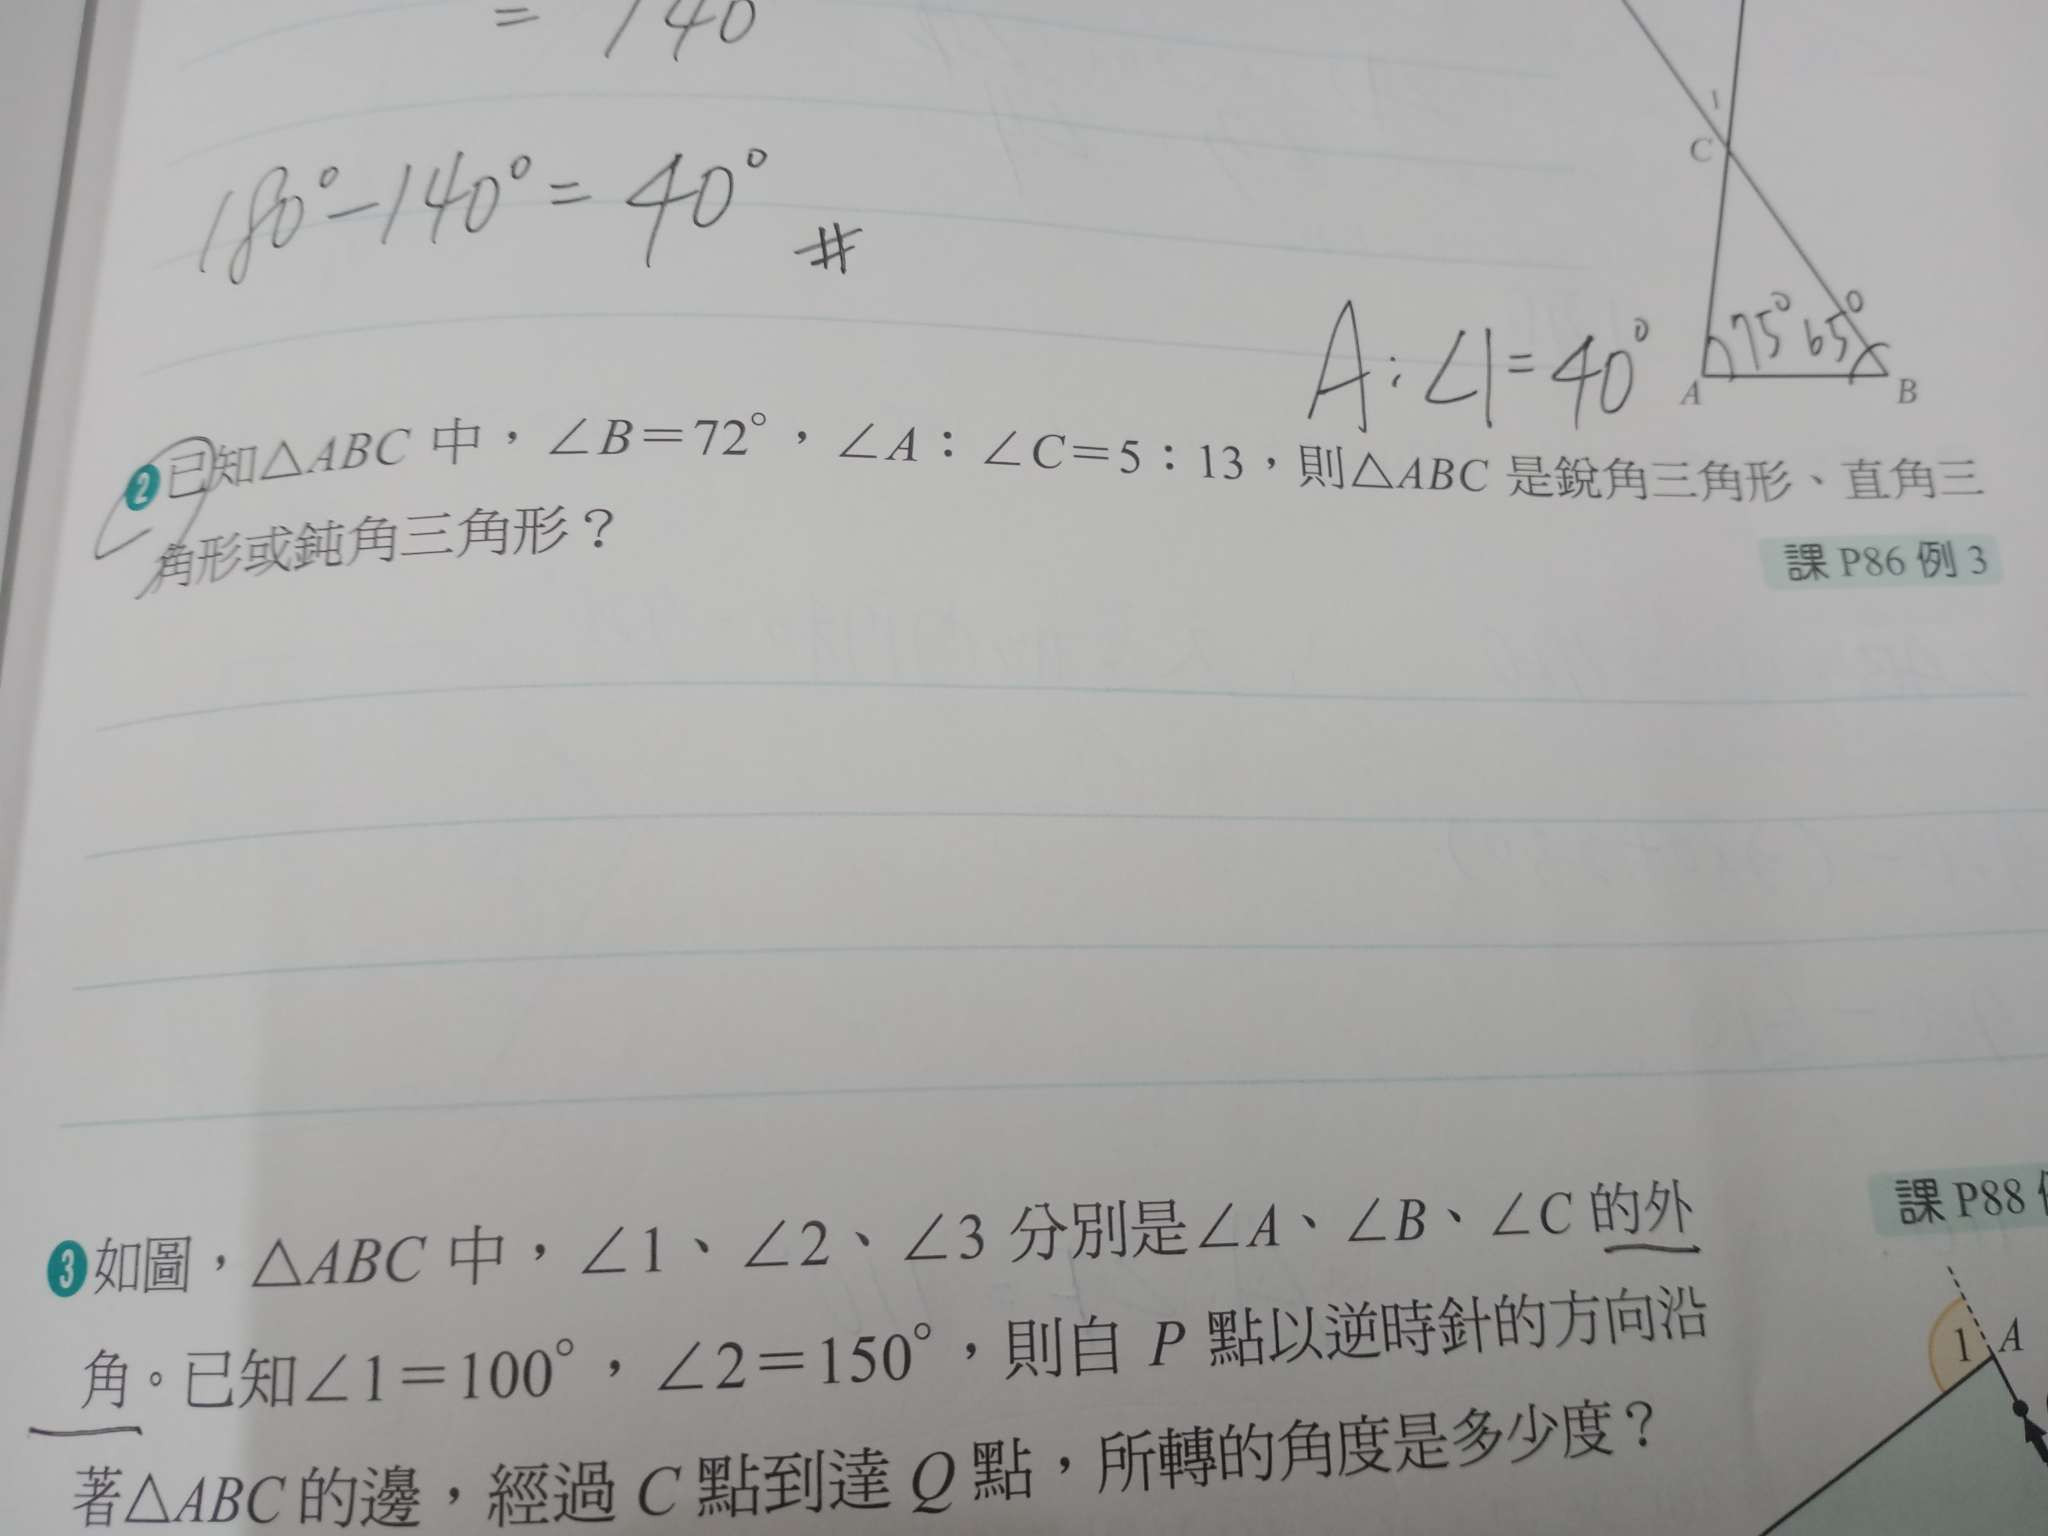 = 140
180°-140°=40° #
1
C
75° 65°
A B
A:∠1=40°
2 已知△ABC 中，∠B=72°，∠A：∠C=5：13，則△ABC 是銳角三角形、直角三
角形或鈍角三角形？
課 P86 例 3
3 如圖，△ABC 中，∠1、∠2、∠3 分別是∠A、∠B、∠C 的外
課 P88
角。已知∠1=100°，∠2=150°，則自 P 點以逆時針的方向沿
1 A
著△ABC 的邊，經過 C 點到達 Q 點，所轉的角度是多少度？